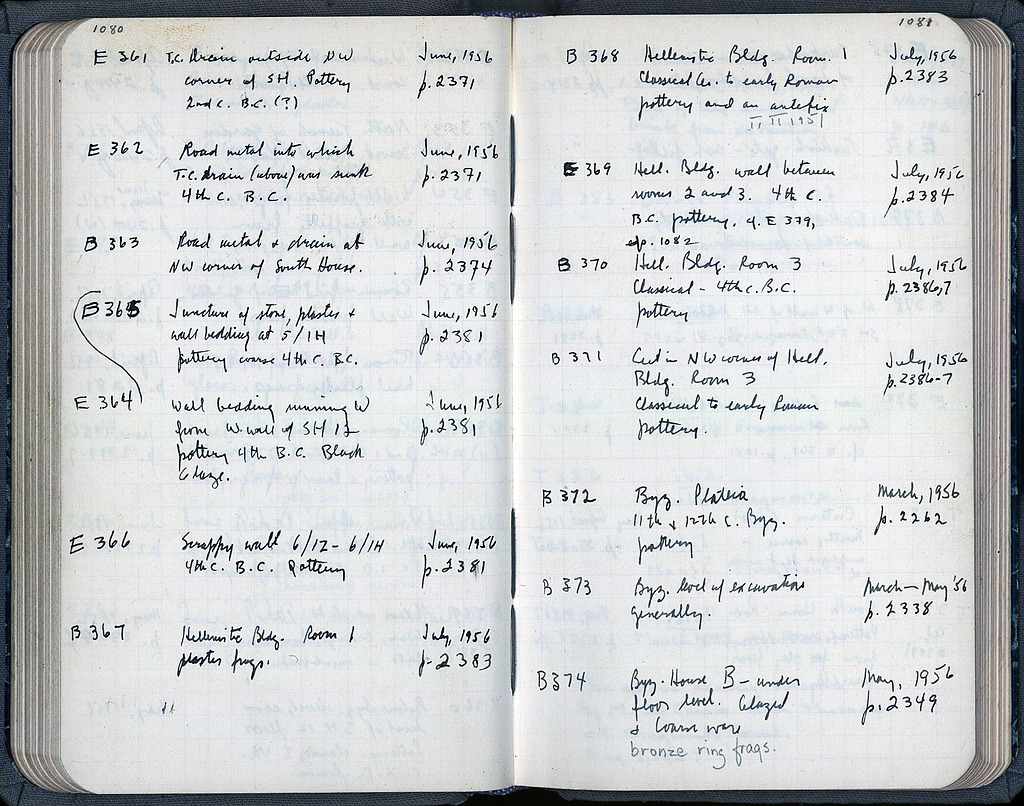 1080
E 361 T.C. Drain outside NW June, 1956
corner of SH. Pottery p. 2371
2nd c. B.C. (?)
E 362 Road metal into which June, 1956
T.C. drain (above) was sunk p. 2371
4th c. B.C.
B 363 Road metal & drain at June, 1956
NW corner of South House. p. 2374
B 365 Juncture of stone, plaster & June, 1956
wall bedding at 5/1H p. 2381
pottery coarse 4th c. B.C.
E 364 Wall bedding running W June, 1956
from W. wall of SH 12 p. 2381
pottery 4th B.C. Black
Glaze.
E 366 Scrappy wall 6/12 - 6/1H June, 1956
4th c. B.C. Pottery p. 2381
B 367 Hellenistic Bldg. Room 1 July, 1956
plaster frags. p. 2383
1081
B 368 Hellenistic Bldg. Room 1 July, 1956
Classical Gr. to early Roman p. 2383
pottery and an antefix
E 369 Hell. Bldg. wall between July, 1956
rooms 2 and 3. 4th c. p. 2384
B.C. pottery. cf. E 379,
p. 1082
B 370 Hell. Bldg. Room 3 July, 1956
Classical - 4th c. B.C. p. 2386,7
pottery
B 371 Cut in NW corner of Hell. July, 1956
Bldg. Room 3 p. 2386-7
Classical to early Roman
pottery.
B 372 Byz. Plateia March, 1956
11th & 12th c. Byz. p. 2262
pottery
B 373 Byz. level of excavation March - May '56
generally. p. 2338
B 374 Byz. House B - under May, 1956
floor level. Glazed p. 2349
& Coarse ware
bronze ring frags.